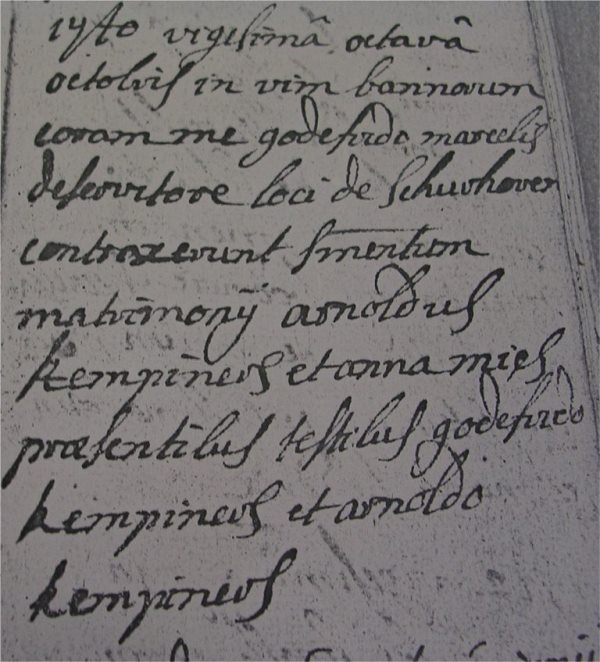 vigesimâ octavâ
octobris in vim bannorum
coram me godefirdo marcelis
deservitore loci de Schurhoven
contraxerunt smentum
matrimonij arnoldus
kempineers et anna mies
præsentibus testibus godefirdo
kempineers et arnoldo
kempineers